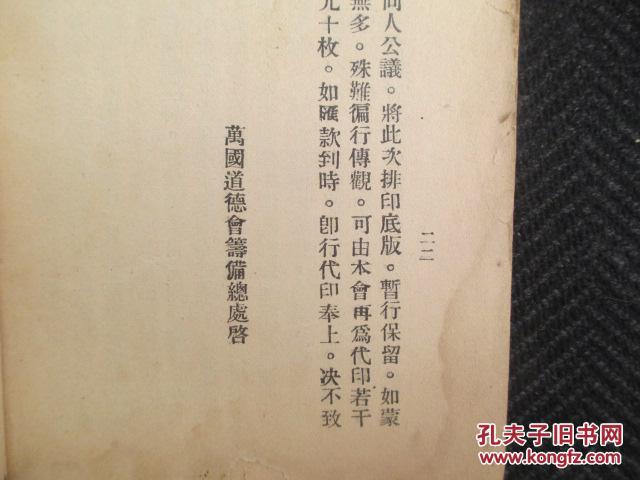 二二
同人公議。將此次排印底版。暫行保留。如蒙
無多。殊難徧行傳觀。可由本會再爲代印若干
九十枚。如匯款到時。卽行代印奉上。决不致
萬國道德會籌備總處啓
孔夫子旧书网
www.kongfz.com